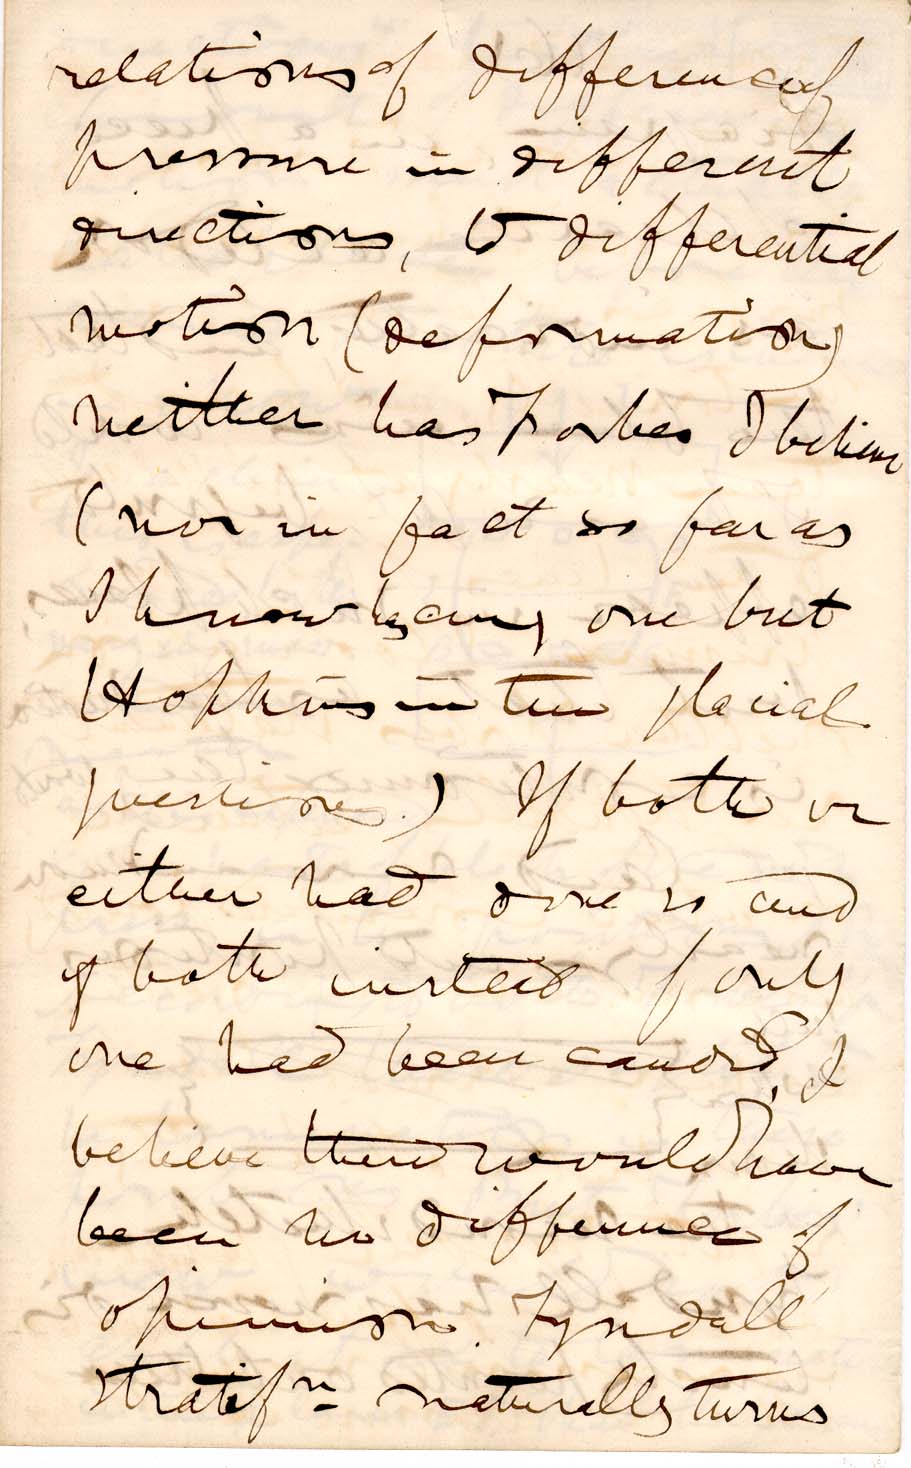 relations of difference of
pressure in different
directions, to differential
motion (deformation)
neither has Forbes I believe
(nor in fact so far as
I know has any one but
Hopkins in the glacial
question.) If both or
either had done so and
if both instead of only
one had been candid, I
believe there would have
been no difference of
opinion. Tyndall
stratifn naturally turns